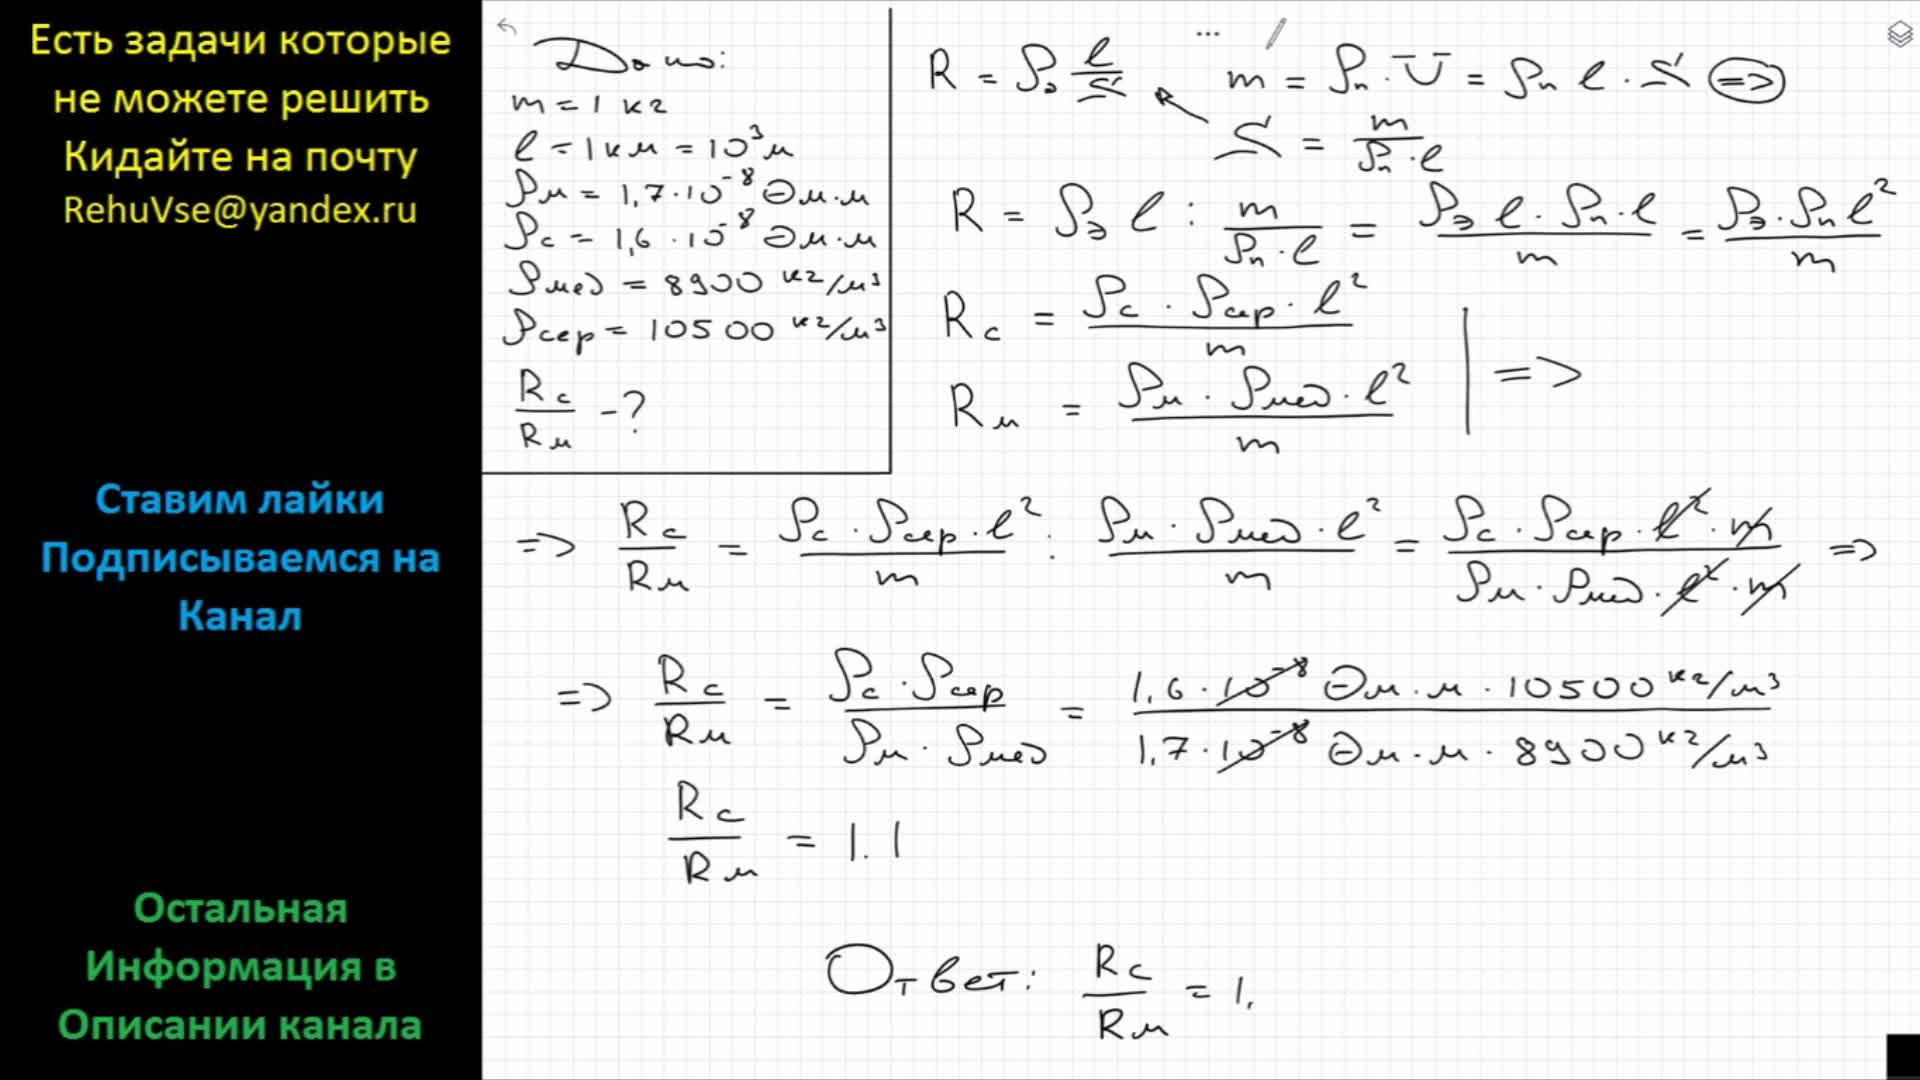 Есть задачи которые
не можете решить
Кидайте на почту
RehuVse@yandex.ru
Ставим лайки
Подписываемся на
Канал
Остальная
Информация в
Описании канала
Дано:
m = 1 кг
l = 1 км = 10³ м
ρм = 1,7·10⁻⁸ Ом·м
ρс = 1,6·10⁻⁸ Ом·м
ρмед = 8900 кг/м³
ρсер = 10500 кг/м³
Rс/Rм - ?
R = ρэ l/S m = ρп · V = ρп l · S =>
S = m/(ρп · l)
R = ρэ l : m/(ρп · l) = (ρэ l · ρп · l)/m = (ρэ · ρп l²)/m
Rс = (ρс · ρсер · l²)/m
Rм = (ρм · ρмед · l²)/m | =>
=> Rс/Rм = (ρс · ρсер · l²)/m : (ρм · ρмед · l²)/m = (ρс · ρсер · l² · m)/(ρм · ρмед · l² · m) =>
=> Rс/Rм = (ρс · ρсер)/(ρм · ρмед) = (1,6 · 10⁻⁸ Ом·м · 10500 кг/м³)/(1,7 · 10⁻⁸ Ом·м · 8900 кг/м³)
Rс/Rм = 1.1
Ответ: Rс/Rм = 1,